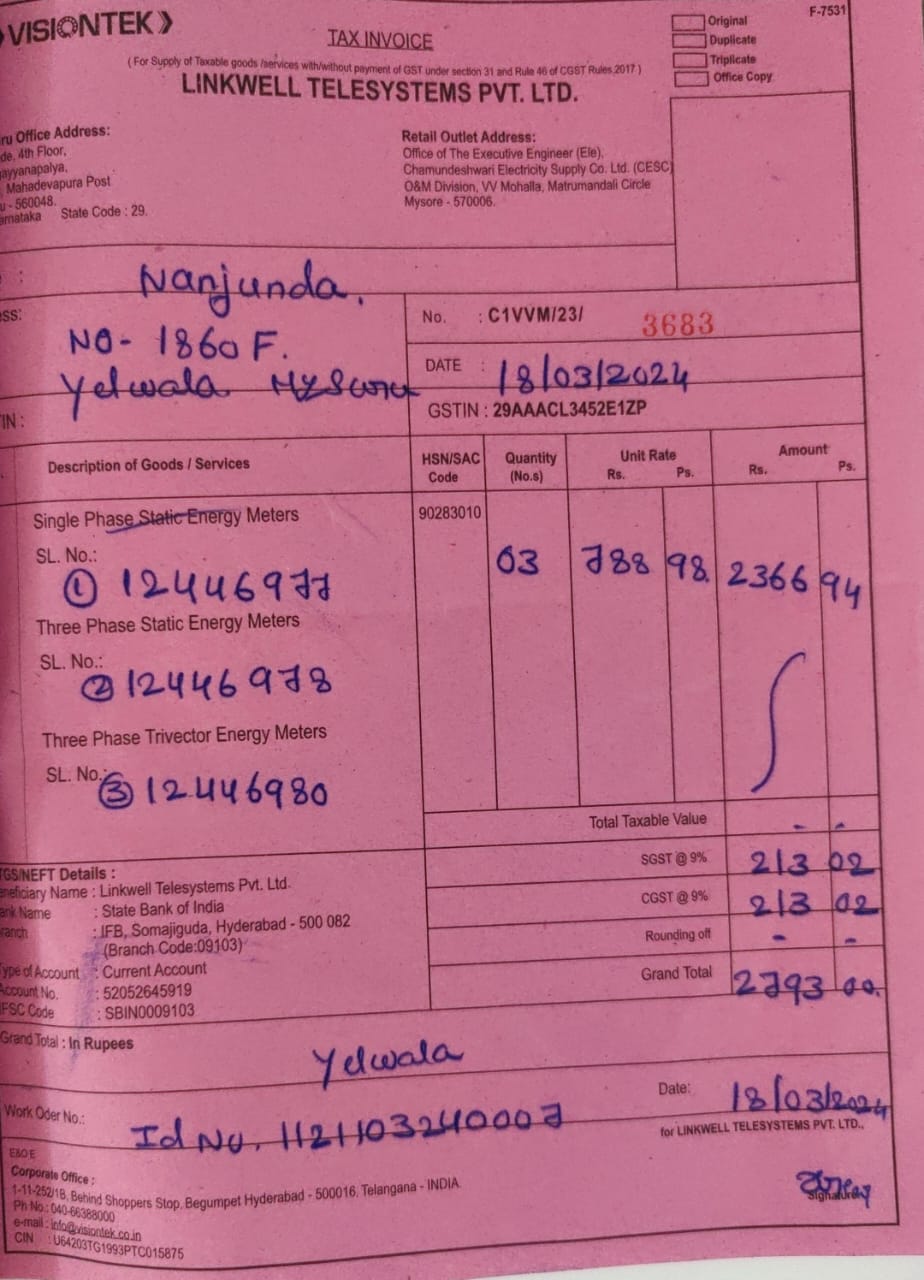 VISIONTEK
F-7531
TAX INVOICE
Original
Duplicate
Triplicate
Office Copy
( For Supply of Taxable goods /services with/without payment of GST under section 31 and Rule 46 of CGST Rules,2017 )
LINKWELL TELESYSTEMS PVT. LTD.
ru Office Address:
de, 4th Floor,
ayyanapalya,
Mahadevapura Post
u - 560048.
arnataka State Code : 29.
Retail Outlet Address:
Office of The Executive Engineer (Ele),
Chamundeshwari Electricity Supply Co. Ltd. (CESC)
O&M Division, VV Mohalla, Matrumandali Circle
Mysore - 570006.
: Nanjunda.
ss: NO- 1860 F.
Yelwala
IN :
No. : C1VVM/23/ 3683
DATE : 18/03/2024
GSTIN : 29AAACL3452E1ZP
Description of Goods / Services HSN/SAC Code Quantity (No.s) Unit Rate Rs. Ps. Amount Rs. Ps.
Single Phase Static Energy Meters 90283010
SL. No.: 03 788 98. 2366 94
① 12446977
Three Phase Static Energy Meters
SL. No.:
② 12446978
Three Phase Trivector Energy Meters
SL. No.: ③ 12446980
Total Taxable Value - -
SGST @ 9% 213 02
CGST @ 9% 213 02
Rounding off - -
Grand Total 2793 00.
TGS/NEFT Details :
eneficiary Name : Linkwell Telesystems Pvt. Ltd.
ank Name : State Bank of India
ranch : IFB, Somajiguda, Hyderabad - 500 082
(Branch Code:09103)
Type of Account : Current Account
Account No. : 52052645919
IFSC Code : SBIN0009103
Grand Total : In Rupees
Yelwala
Work Oder No.: Id No. 1121103240007
Date: 18/03/2024
for LINKWELL TELESYSTEMS PVT. LTD.,
E&OE
Corporate Office :
1-11-252/1B, Behind Shoppers Stop, Begumpet Hyderabad - 500016, Telangana - INDIA.
Ph No.: 040-66388000
e-mail : info@visiontek.co.in
CIN : U64203TG1993PTC015875
Signature